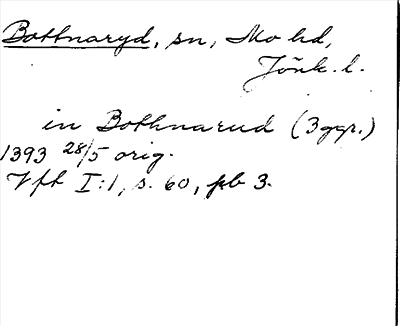 Bottnaryd, sn, Mo hd,
Jönk. l.
in Bothnarud (3 ggr.)
1393 28/5 orig.
Vft I:1, s. 60, pb 3.